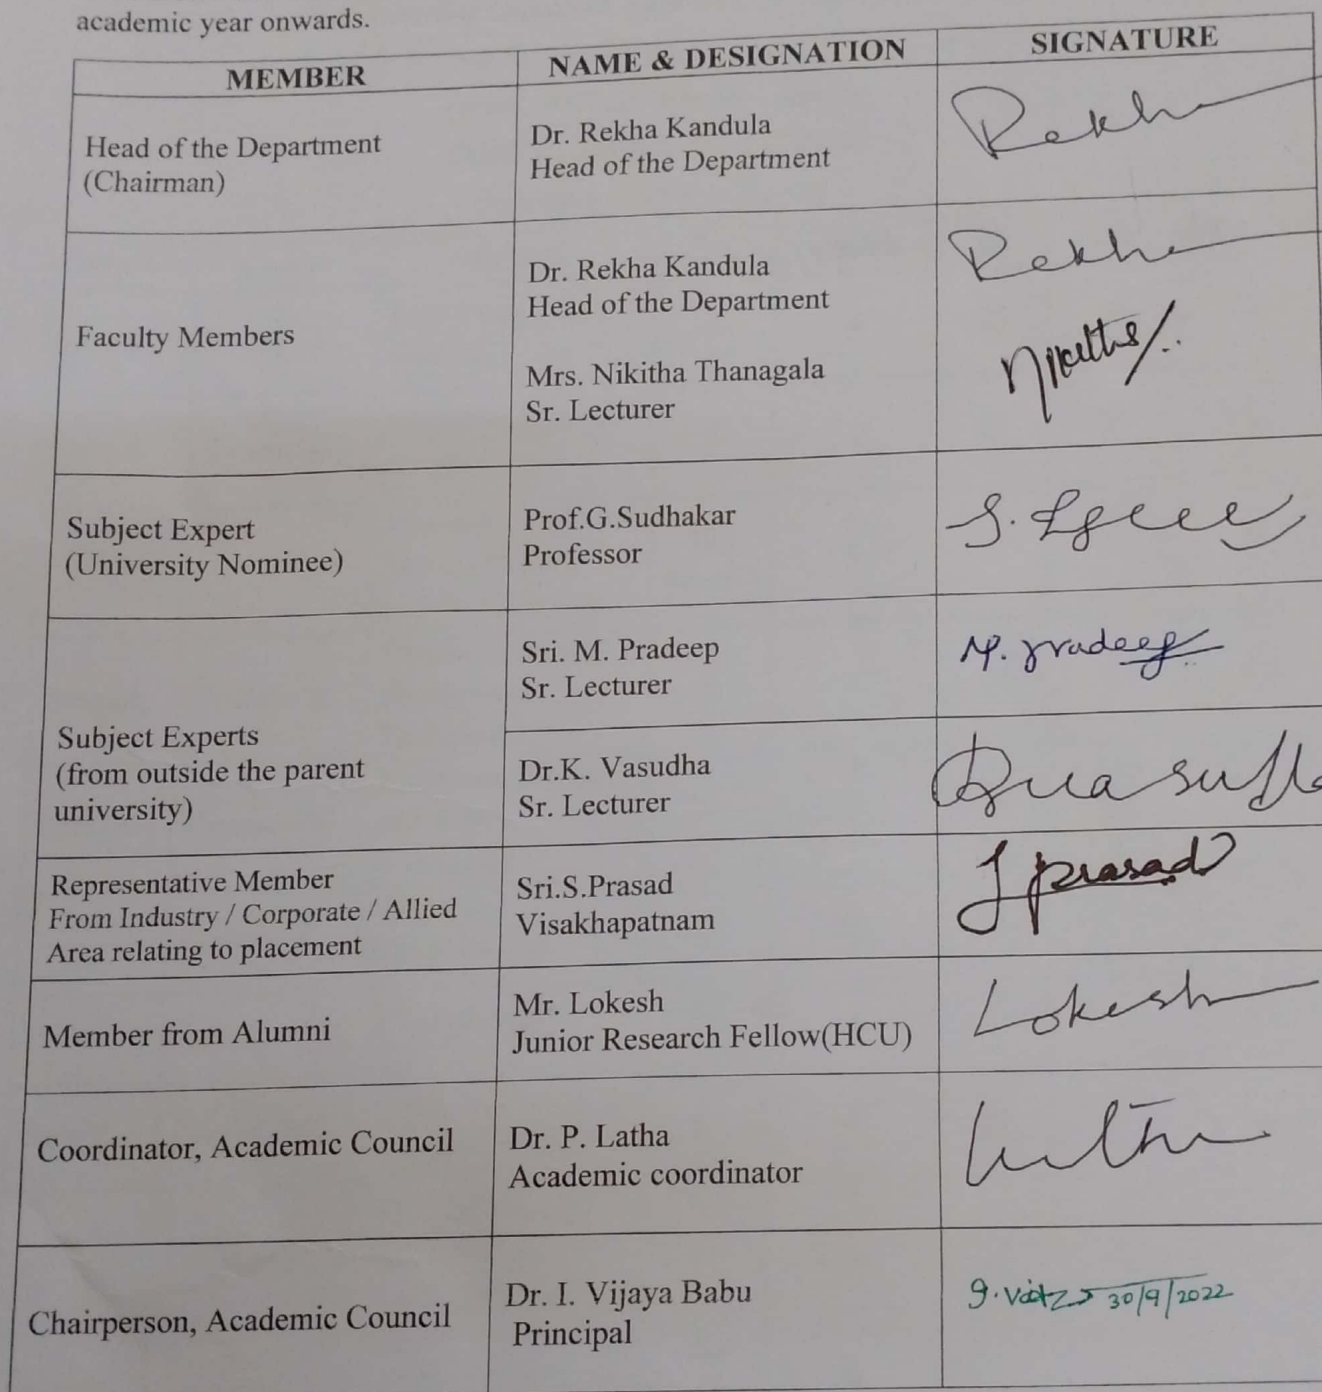 academic year onwards.
MEMBER NAME & DESIGNATION SIGNATURE
Head of the Department
(Chairman)
Dr. Rekha Kandula
Head of the Department
Rekha
Faculty Members
Dr. Rekha Kandula
Head of the Department
Rekha
Mrs. Nikitha Thanagala
Sr. Lecturer
Nikitha
Subject Expert
(University Nominee)
Prof.G.Sudhakar
Professor
Subject Experts
(from outside the parent
university)
Sri. M. Pradeep
Sr. Lecturer
M. Pradeep
Dr.K. Vasudha
Sr. Lecturer
Representative Member
From Industry / Corporate / Allied
Area relating to placement
Sri.S.Prasad
Visakhapatnam
Prasad
Member from Alumni
Mr. Lokesh
Junior Research Fellow(HCU)
Lokesh
Coordinator, Academic Council
Dr. P. Latha
Academic coordinator
Latha
Chairperson, Academic Council
Dr. I. Vijaya Babu
Principal
30/9/2022